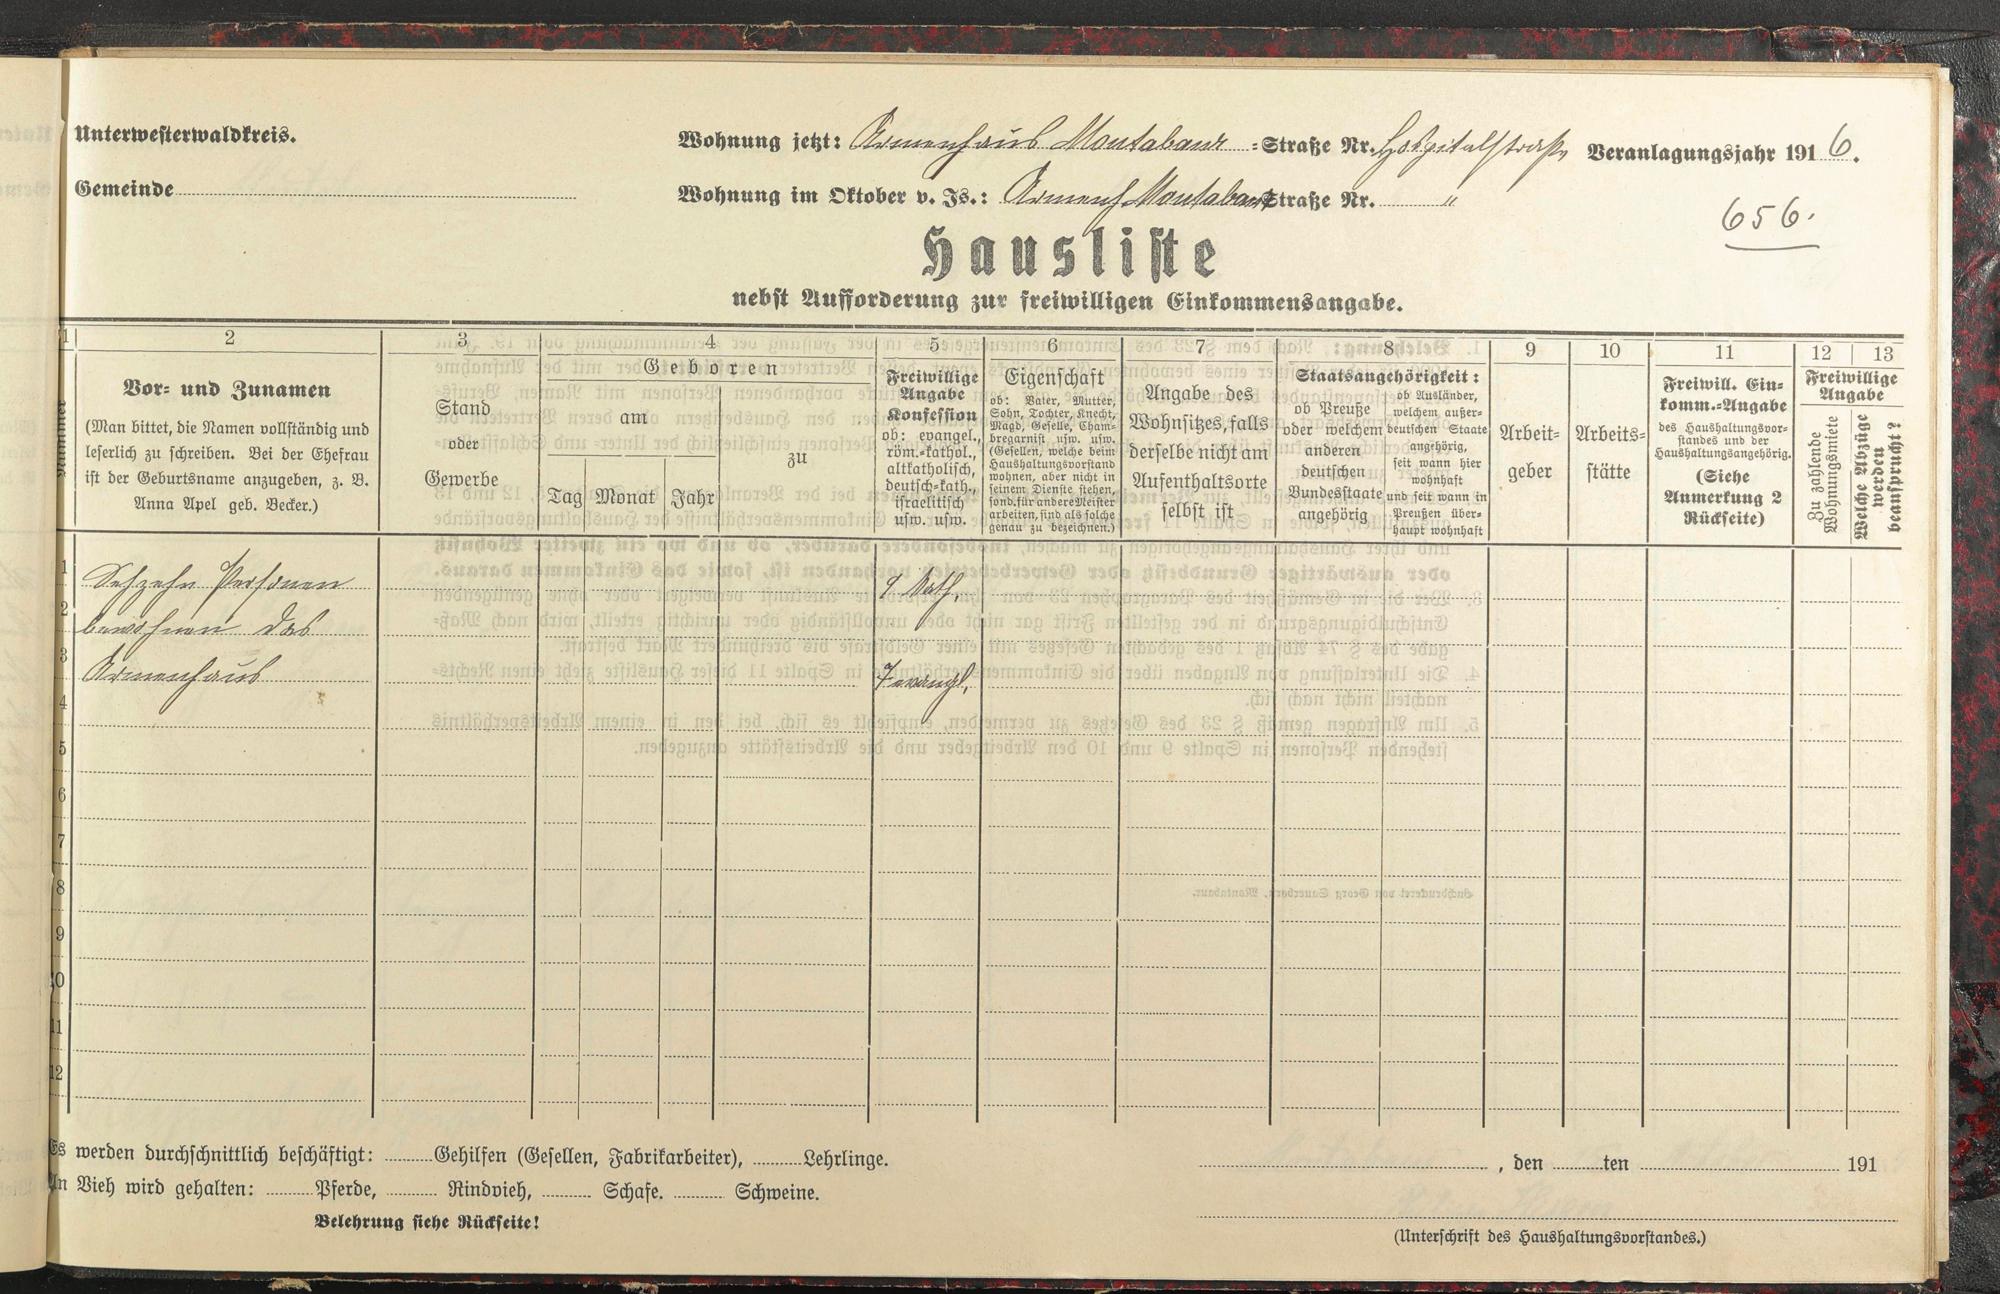 Unterwesterwaldkreis.
Wohnung jetzt: Armenhaus Montabaur -Straße Nr. Hospitalstraße Veranlagungsjahr 1916.
Gemeinde
Wohnung im Oktober v. Js.: Armenh. Montabaur Straße Nr. "
656.
Hausliste
nebst Aufforderung zur freiwilligen Einkommensangabe.
1 2 3 4 5 6 7 8 9 10 11 12 13
Nummer
Vor- und Zunamen
(Man bittet, die Namen vollständig und
leserlich zu schreiben. Bei der Ehefrau
ist der Geburtsname anzugeben, z. B.
Anna Apel geb. Becker.)
Stand
oder
Gewerbe
Geboren
am
zu
Tag Monat Jahr
Freiwillige
Angabe
Konfession
ob: evangel.,
röm.-kathol.,
altkatholisch,
deutsch-kath.,
israelitisch
usw. usw.
Eigenschaft
ob: Vater, Mutter,
Sohn, Tochter, Knecht,
Magd, Geselle, Cham-
bregarnist usw. usw.
(Gesellen, welche beim
Haushaltungsvorstand
wohnen, aber nicht in
seinem Dienste stehen,
sond. für andere Meister
arbeiten, sind als solche
genau zu bezeichnen.)
Angabe des
Wohnsitzes, falls
derselbe nicht am
Aufenthaltsorte
selbst ist
Staatsangehörigkeit:
ob Preuße
oder welchem
anderen
deutschen
Bundesstaate
angehörig
ob Ausländer,
welchem außer-
deutschen Staate
angehörig,
seit wann hier
wohnhaft
und seit wann in
Preußen über-
haupt wohnhaft
Arbeit-
geber
Arbeits-
stätte
Freiwill. Ein-
komm.-Angabe
des Haushaltungsvor-
standes und der
Haushaltungsangehörig.
(Siehe
Anmerkung 2
Rückseite)
Freiwillige
Angabe
Zu zahlende
Wohnungsmiete
Welche Abzüge
werden
beansprucht?
1 Sechzehn Personen 9 Kath.
2 bewohnen das
3 Armenhaus 7 evangl.
4
5
6
7
8
9
10
11
12
Es werden durchschnittlich beschäftigt: Gehilfen (Gesellen, Fabrikarbeiter), Lehrlinge.
, den ten 191
An Vieh wird gehalten: Pferde, Rindvieh, Schafe. Schweine.
Belehrung siehe Rückseite!
(Unterschrift des Haushaltungsvorstandes.)